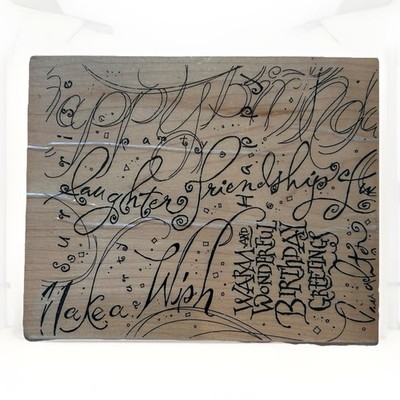 happy birthday
surprise
laughter friendship
party
Make a Wish
WARM AND
WONDERFUL
BIRTHDAY
GREETINGS